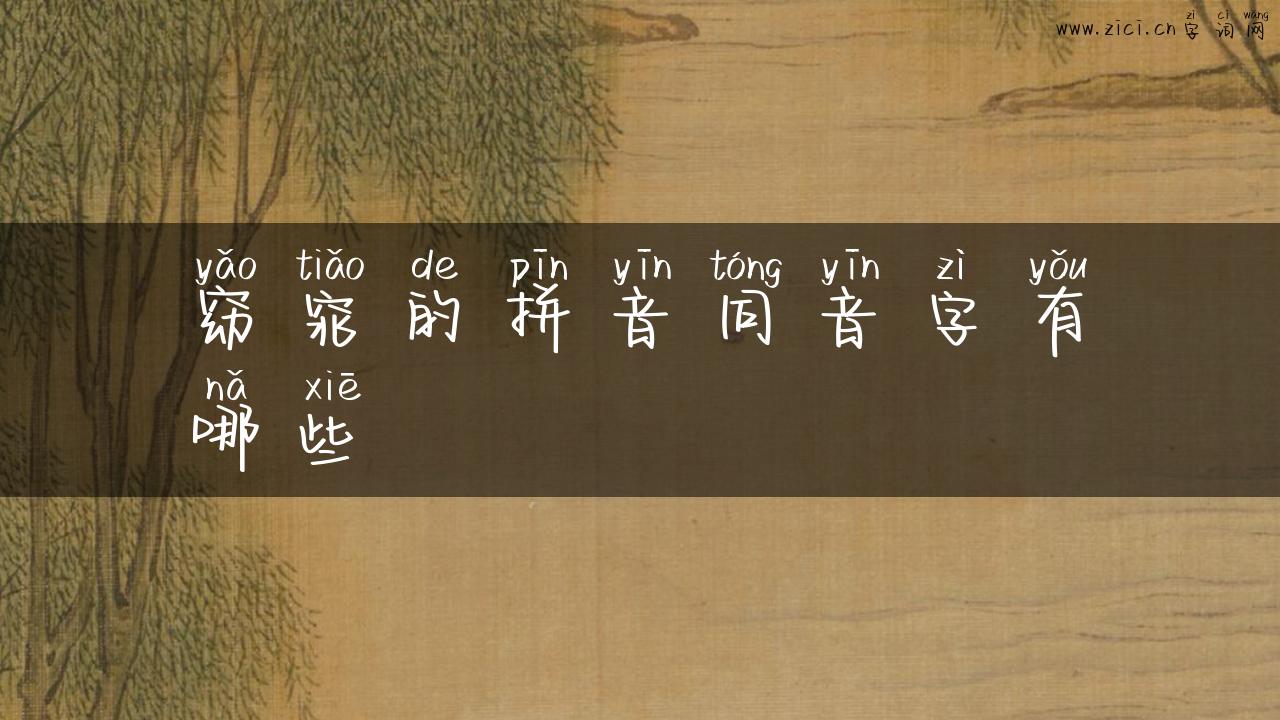 zì cí wǎng
www.zici.cn 字词网
yǎo tiǎo de pīn yīn tóng yīn zì yǒu
窈窕的拼音同音字有
nǎ xiē
哪些